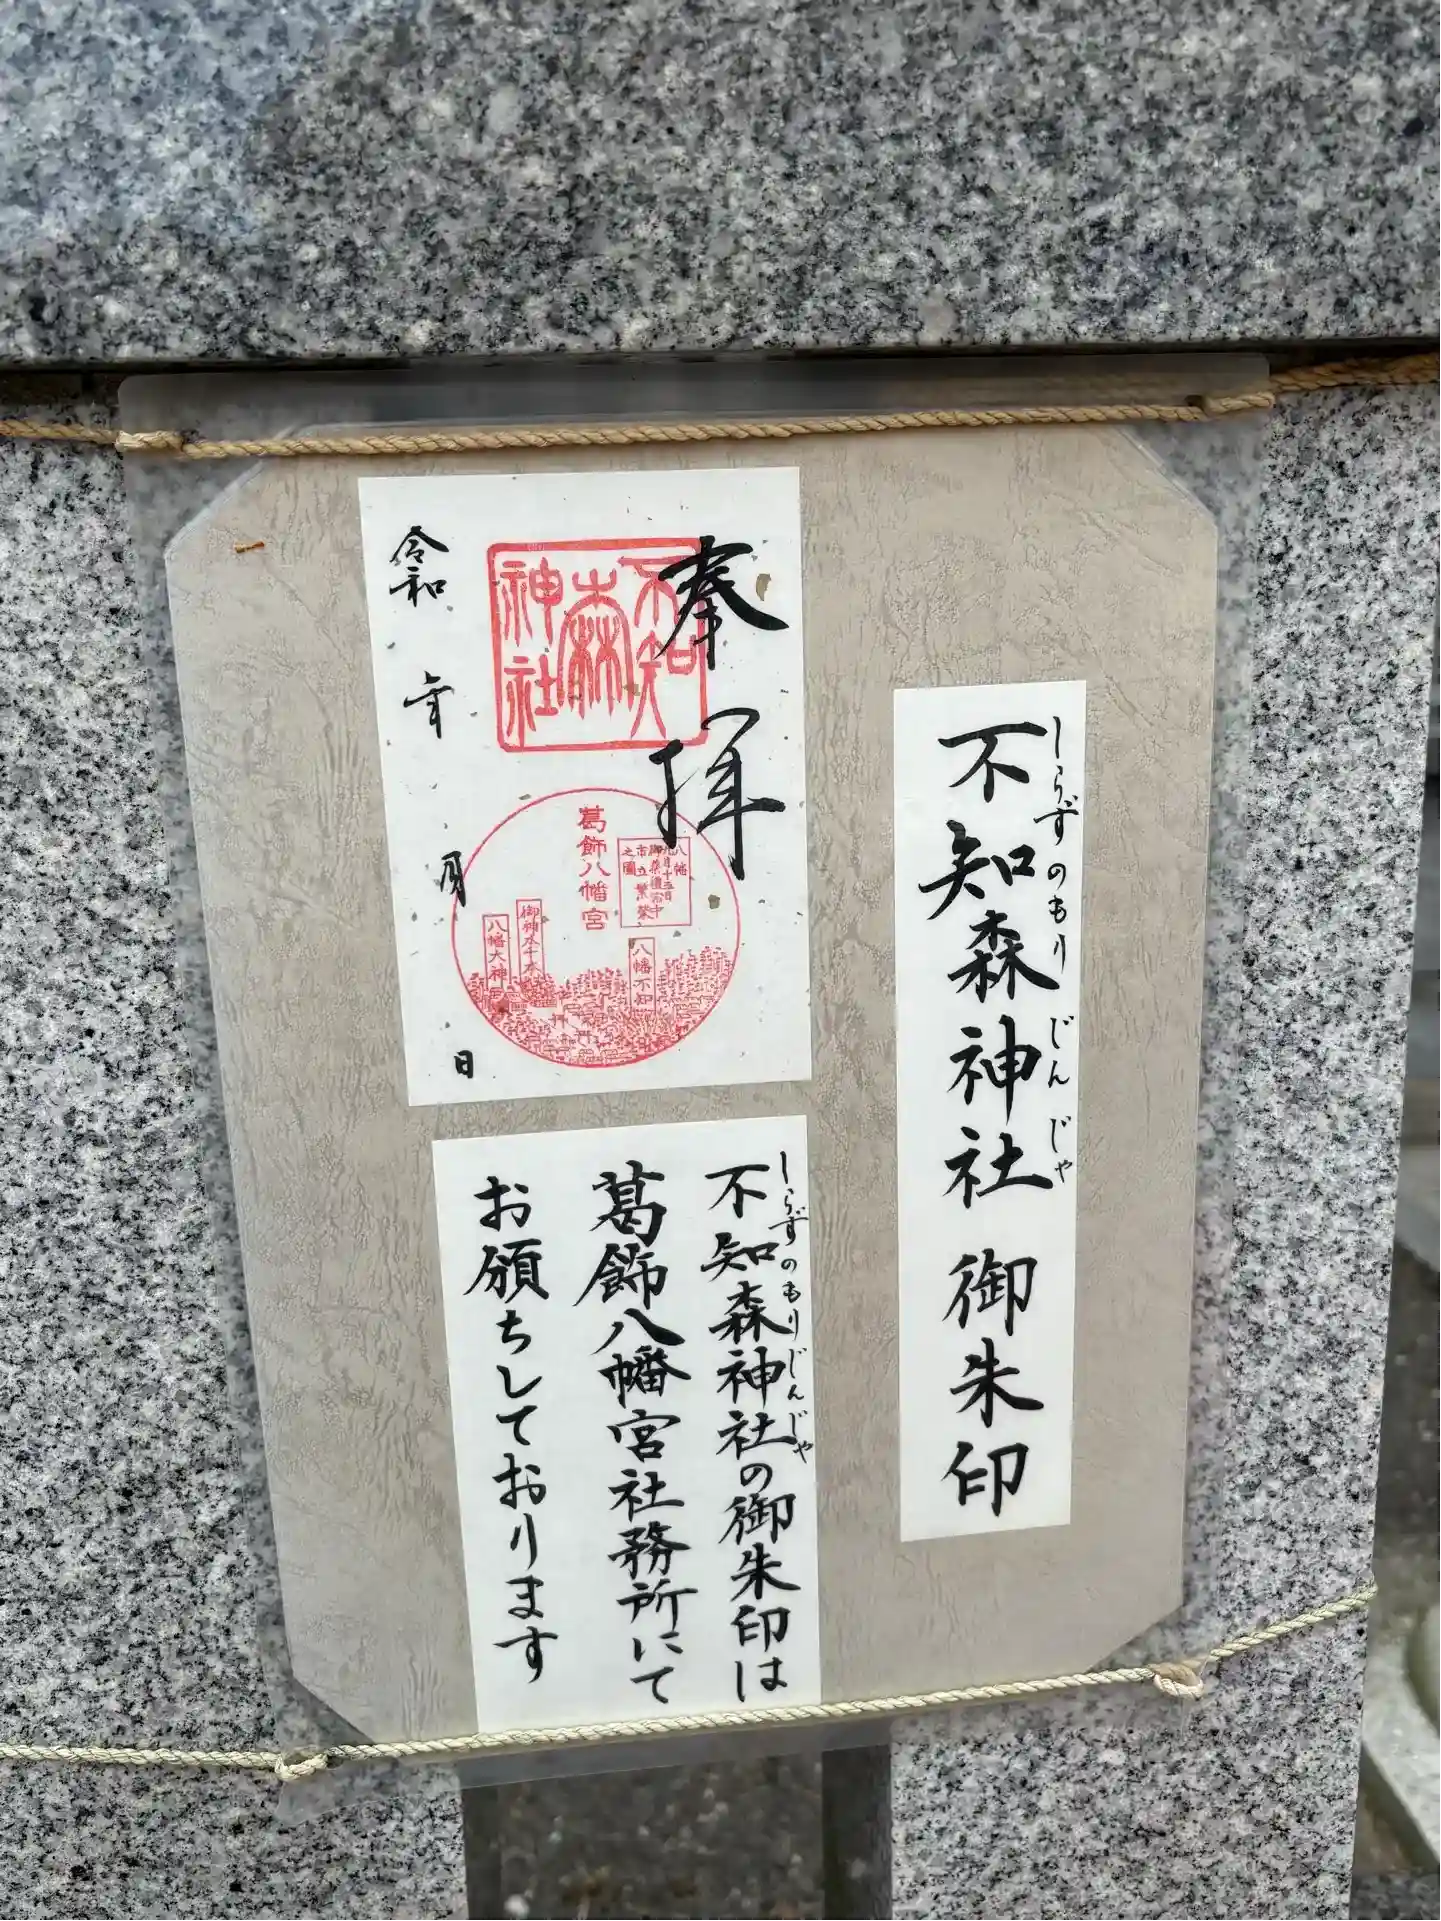 不知森神社 御朱印
しらずのもり じんじゃ
奉拝
不知森神社
葛飾八幡宮
八幡
九月十五日
御祭禮宮中
市立繁榮
之圖
八幡不知
御神木千本
八幡大神
令和 年 月 日
不知森神社の御朱印は
しらずのもりじんじゃ
葛飾八幡宮社務所にて
お頒ちしております